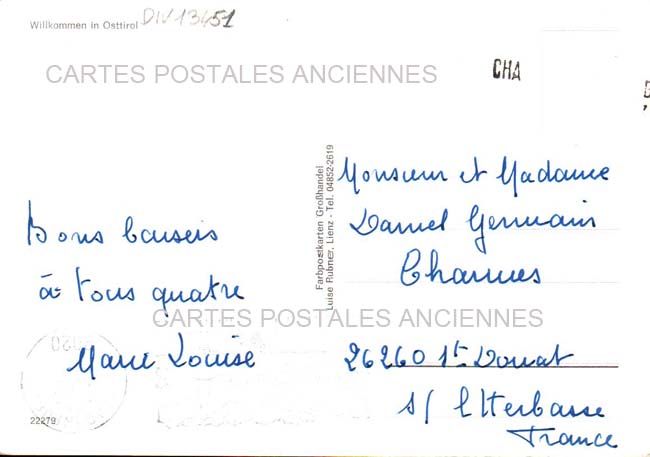 Willkommen in Osttirol
DIV13451
CARTES POSTALES ANCIENNES
CHA
Bons baisers
à tous quatre
Marie Louise
Farbpostkarten Großhandel
Luise Rubner, Lienz - Tel. 04852-2619
Monsieur et Madame
Daniel Germain
Charmes
26260 St Donat
s/ l'Herbasse
France
CARTES POSTALES ANCIENNES
22279